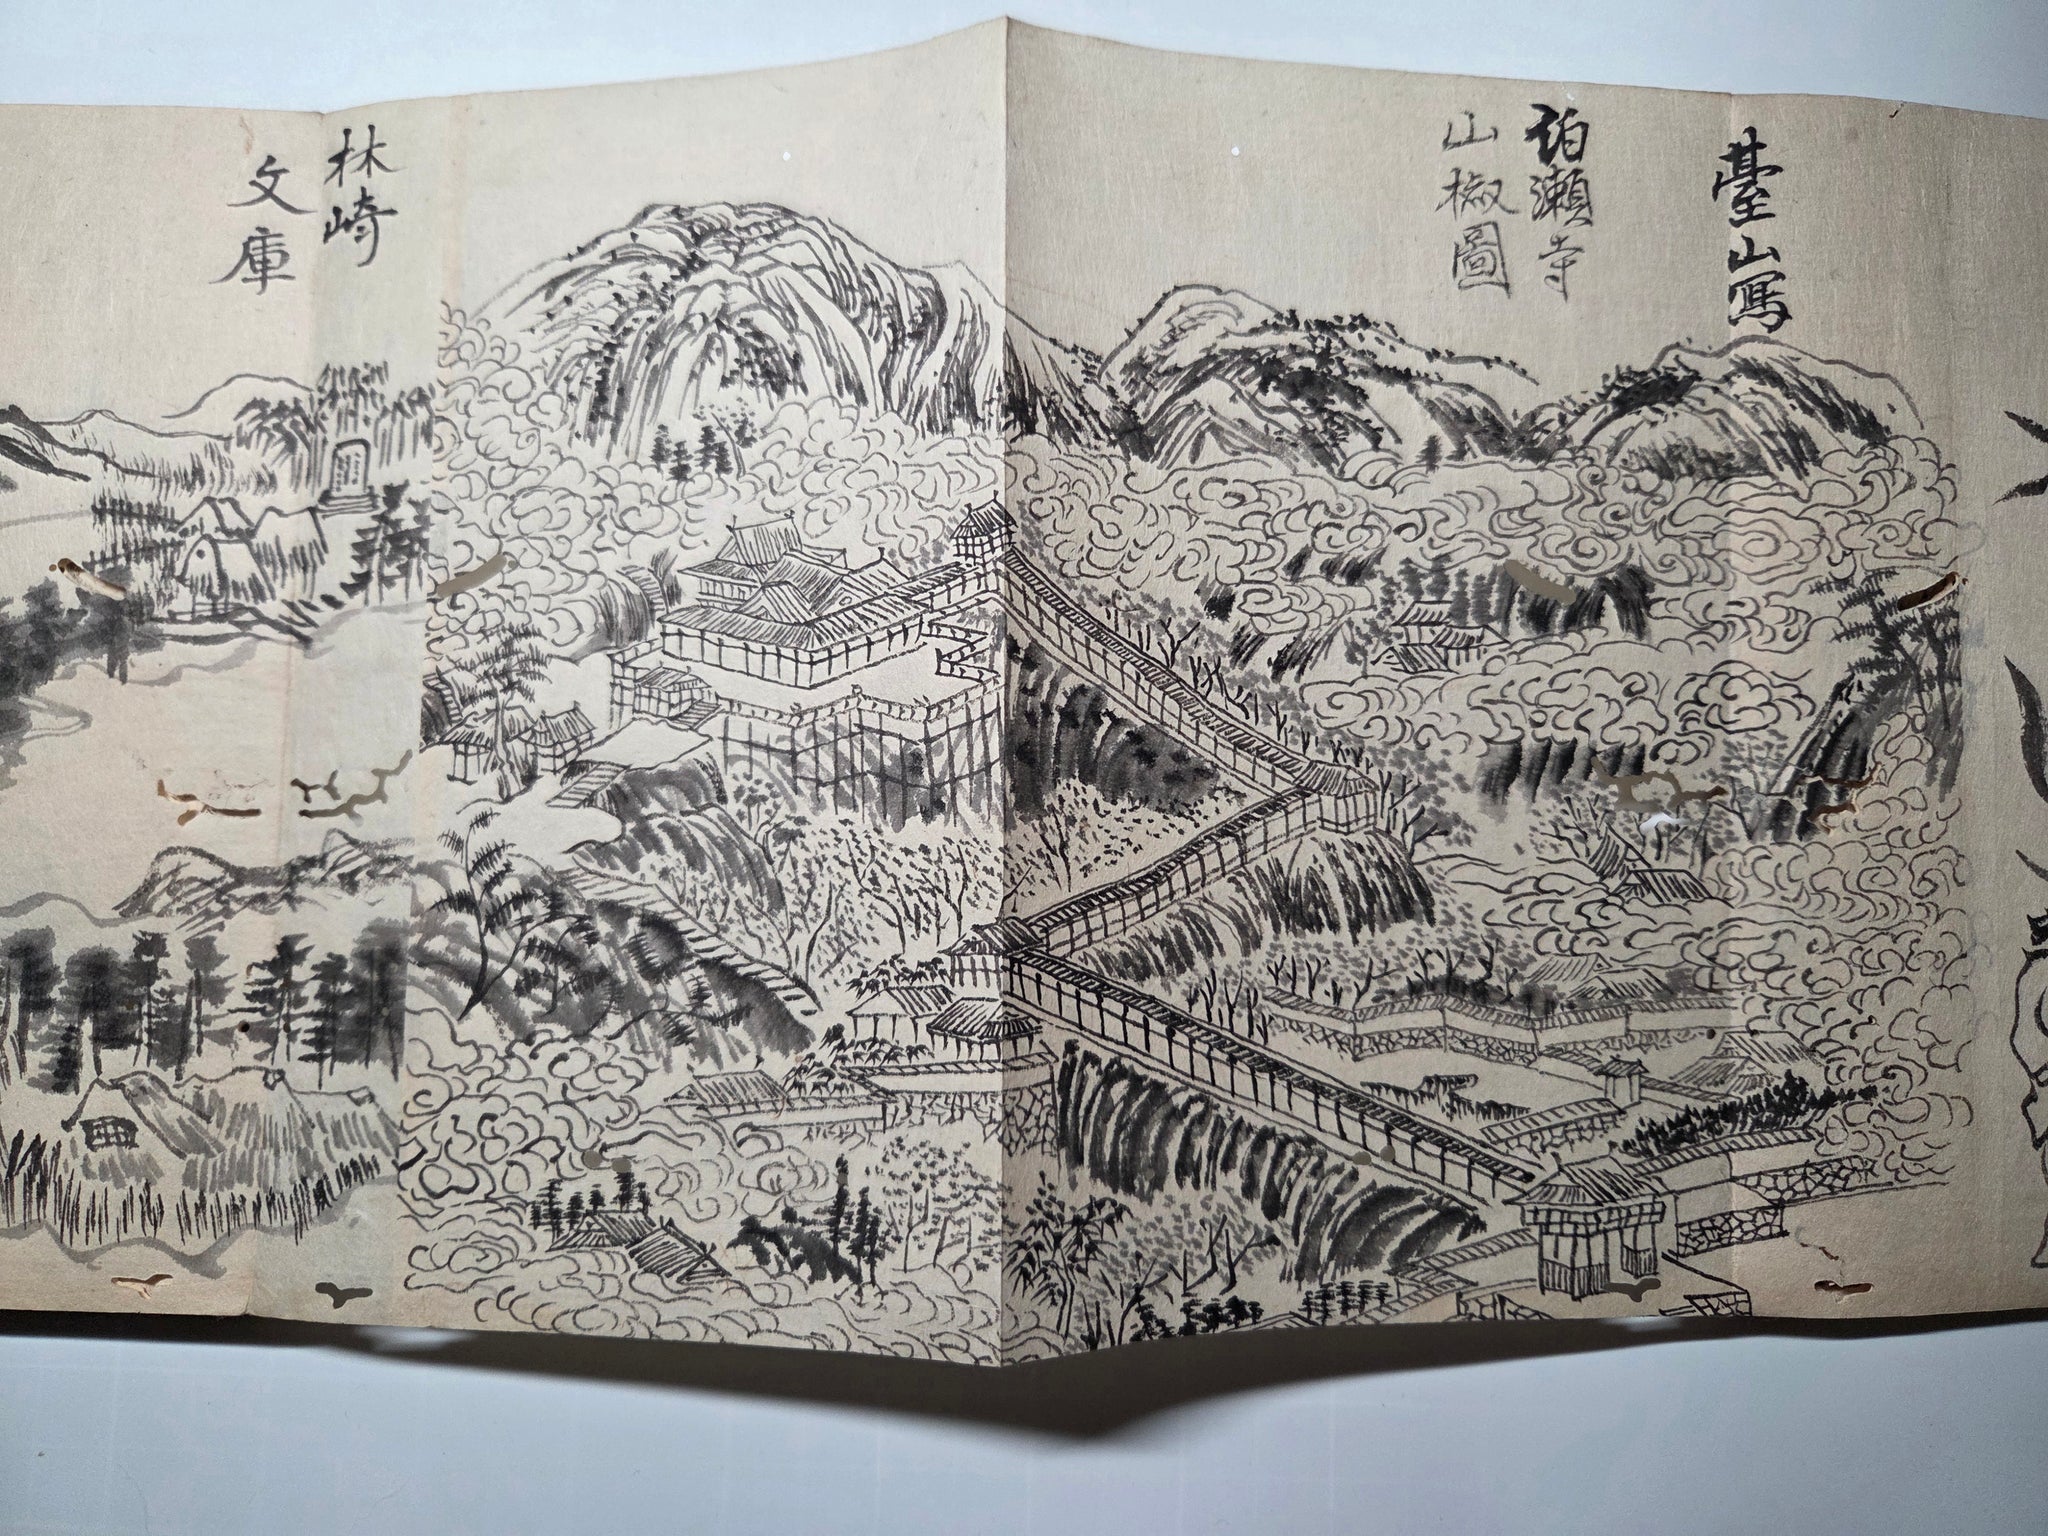 臺山寫
泊瀬寺
山椒圖
林崎
文庫